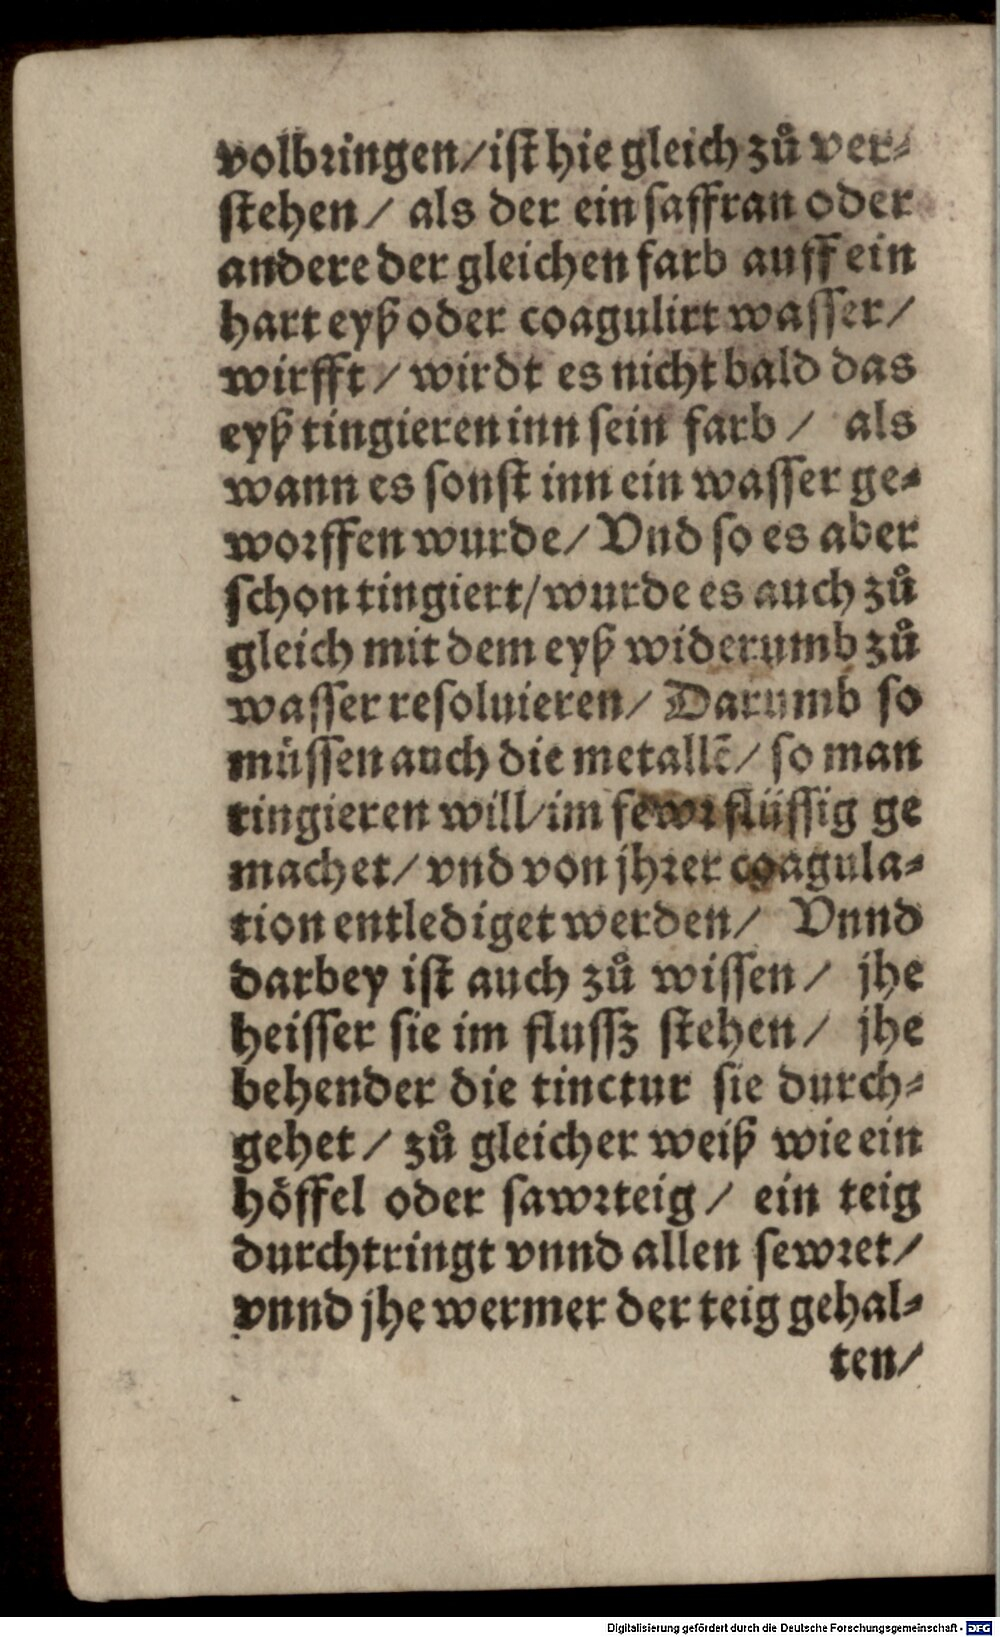 volbringen/ist hie gleich zů ver-
stehen/ als der ein saffran oder
andere der gleichen farb auff ein
hart eyß oder coagulirt wasser/
wirfft/ wirdt es nicht bald das
eyß tingieren inn sein farb/ als
wann es sonst inn ein wasser ge-
worffen wurde/ Vnd so es aber
schon tingiert/wurde es auch zů
gleich mit dem eyß widerumb zů
wasser resoluieren/ Darumb so
müssen auch die metallē/ so man
tingieren will/im fewr flüssig ge
machet/ vnd von jhrer coagula-
tion entlediget werden/ Vnnd
darbey ist auch zů wissen/ jhe
heisser sie im flussz stehen/ jhe
behender die tinctur sie durch-
gehet/ zů gleicher weiß wie ein
höffel oder sawrteig/ ein teig
durchtringt vnnd allen sewret/
vnnd jhe wermer der teig gehal-
ten/
Digitalisierung gefördert durch die Deutsche Forschungsgemeinschaft - DFG